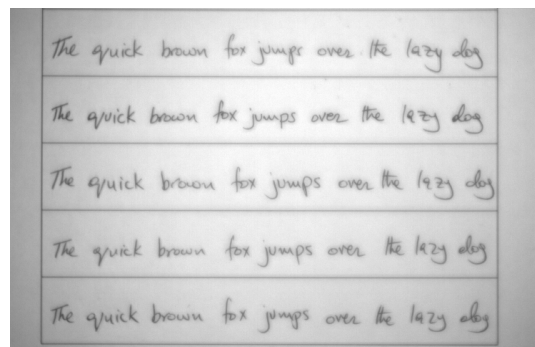 The quick brown fox jumps over the lazy dog
The quick brown fox jumps over the lazy dog
The quick brown fox jumps over the lazy dog
The quick brown fox jumps over the lazy dog
The quick brown fox jumps over the lazy dog